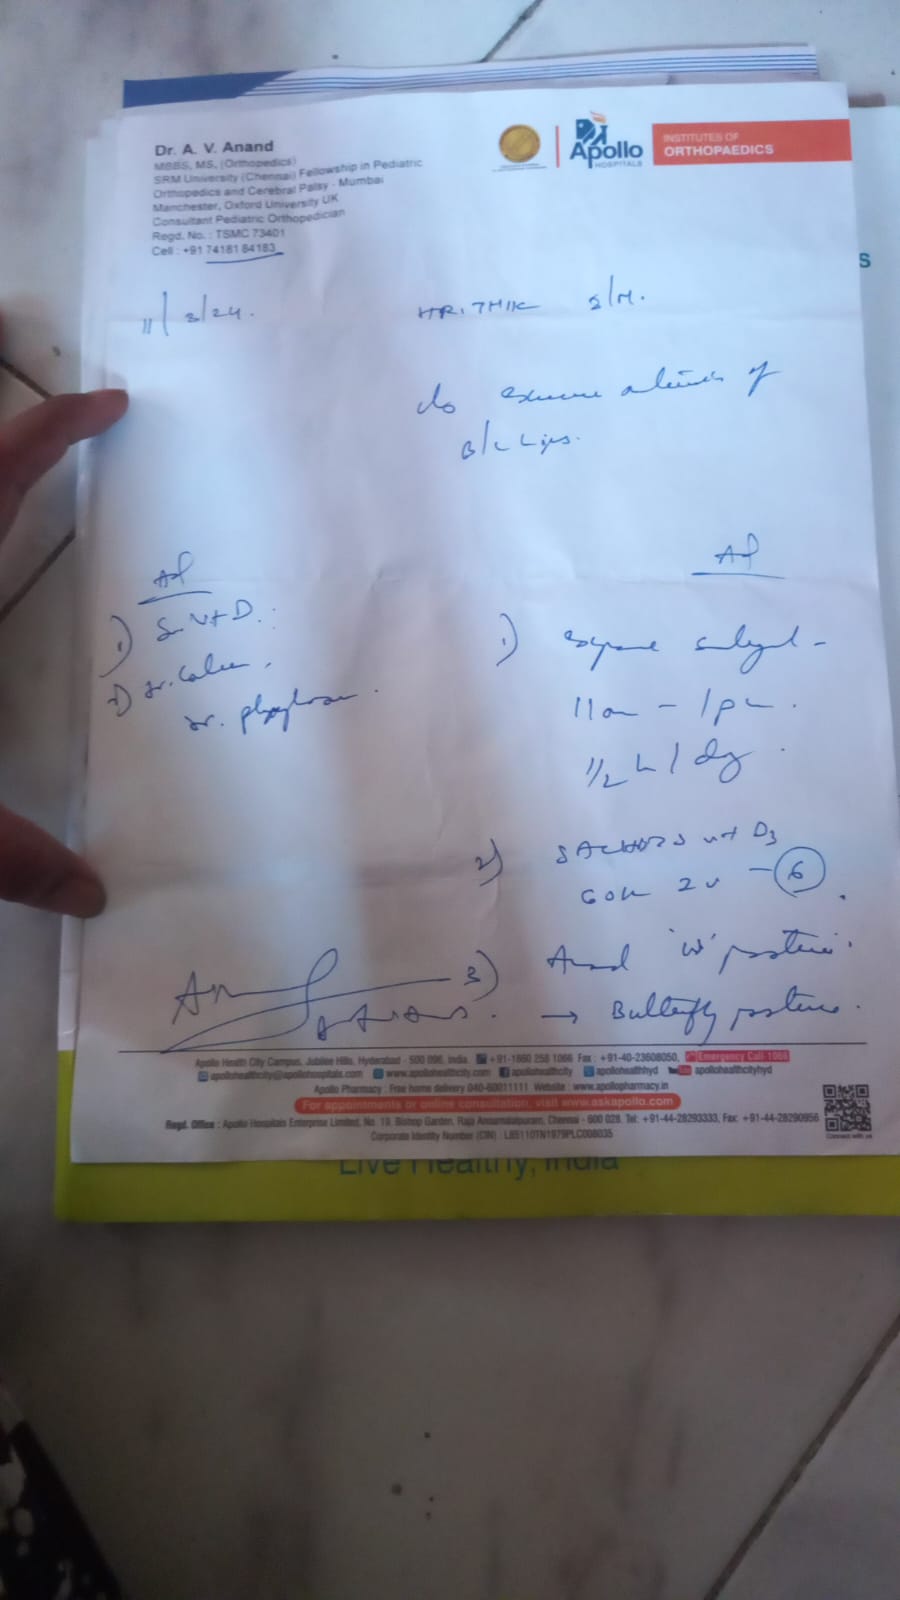 Dr. A. V. Anand
MBBS, MS, (Orthopedics)
SRM University (Chennai) Fellowship in Pediatric
Orthopedics and Cerebral Palsy - Mumbai
Manchester, Oxford University UK
Consultant Pediatric Orthopedician
Regd. No.: TSMC 73401
Cell : +91 74181 84183
Apollo
HOSPITALS
INSTITUTES OF
ORTHOPAEDICS
S
11/3/24.
HRITHIK 8/M.
of
B/L Hips.
Ad
1) S. Vit D.
2) Sr. Calcium,
Sr. phosphorus.
Ad
1)
11am - 1pm.
1/2 h / day.
2) SACHETS vit D3
60K
- 6
3) Avoid 'W' posture.
→ Butterfly posture.
Apollo Health City Campus, Jubilee Hills, Hyderabad - 500 096, India. +91-1860 258 1066 Fax : +91-40-23608050, Emergency Call-1066
apollohealthcity@apollohospitals.com www.apollohealthcity.com apollohealthcity apollohealthhyd apollohealthcityhyd
Apollo Pharmacy : Free home delivery 040-60011111 Website : www.apollopharmacy.in
For appointments or online consultation, visit www.askapollo.com
Regd. Office : Apollo Hospitals Enterprise Limited, No. 19, Bishop Garden, Raja Annamalaipuram, Chennai - 600 028. Tel: +91-44-28293333, Fax: +91-44-28290956
Corporate Identity Number (CIN) : L85110TN1979PLC008035
Connect with us
Live Healthy, India